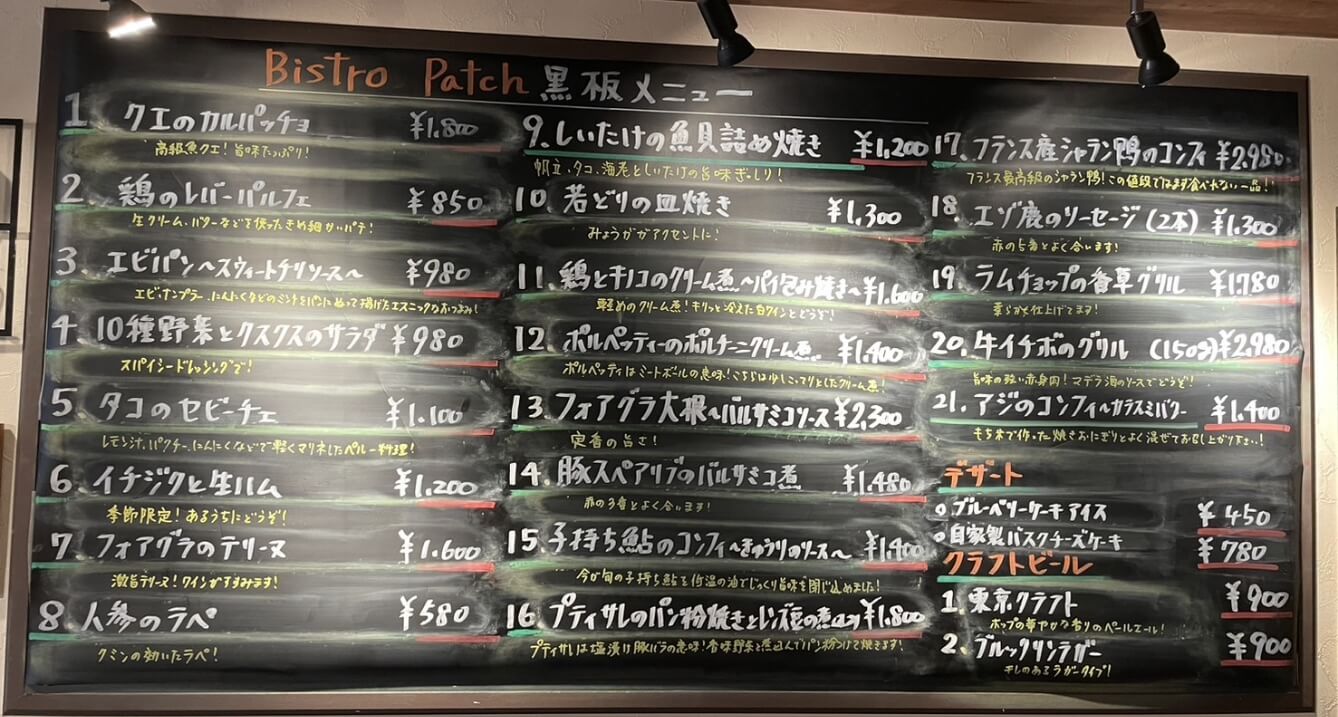 Bistro Patch 黒板メニュー
1 クエのカルパッチョ ¥1.800
高級魚クエ!旨味たっぷり!
2. 鶏のレバーパルフェ ¥850
生クリーム、バターなどを使ったきめ細かいパテ!
3. エビパン〜スウィートチリソース〜 ¥980
エビ、ナンプラー、にんにくなどのミンチをパンにぬって揚げたエスニックなおつまみ!
4. 10種野菜とクスクスのサラダ ¥980
スパイシードレッシングで!
5. タコのセビーチェ ¥1.100
レモン汁、パクチー、にんにくなどで軽くマリネしたペルー料理!
6. イチジクと生ハム ¥1,200
季節限定!あるうちにどうぞ!
7. フォアグラのテリーヌ ¥1.600
激旨テリーヌ!ワインがすすみます!
8 人参のラペ ¥580
クミンの効いたラペ!
9. しいたけの魚貝詰め焼き ¥1,200
帆立、タコ、海老としいたけの旨味ぎっしり!
10. 若どりの皿焼き ¥1,300
みょうががアクセントに!
11. 鶏とキノコのクリーム煮〜パイ包み焼き〜 ¥1,600
軽めのクリーム煮!キリッと冷えた白ワインとどうぞ!
12. ポルペッティーのポルチーニクリーム煮 ¥1,400
ポルペッティはミートボールの意味!こちらは少しこってりとしたクリーム煮!
13. フォアグラ大根〜バルサミコソース ¥2,300
定番の旨さ!
14. 豚スペアリブのバルサミコ煮 ¥1,480
赤の泡とよく合います!
15 子持ち鮎のコンフィ〜きゅうりのソース〜 ¥1,400
今が旬の子持ち鮎を低温の油でじっくり旨味を閉じ込めました!
16. プティサレのパン粉焼きとレンズ豆の煮込み ¥1,800
プティサレは塩漬け豚バラの意味!香味野菜と煮込んでパン粉つけて焼きます!
17. フランス産シャラン鴨のコンフィ ¥2,980
フランス最高級のシャラン鴨!この値段ではまず食べれない一品!
18. エゾ鹿のソーセージ(2本) ¥1,300
赤の泡とよく合います!
19. ラムチョップの香草グリル ¥1,780
柔らかく仕上げてます!
20. 牛イチボのグリル (150g) ¥2,980
旨味の強い赤身肉!マデラ酒のソースでどうぞ!
21. アジのコンフィ〜カラスミバター ¥1,400
もち米で作った焼きおにぎりとよく混ぜてお召し上がり下さい!
デザート
○ブルーベリーケーキアイス ¥450
○自家製バスクチーズケーキ ¥780
クラフトビール
1. 東京クラフト ¥900
ホップの華やかな香りのペールエール!
2. ブルックリンラガー ¥900
キレのあるラガータイプ!